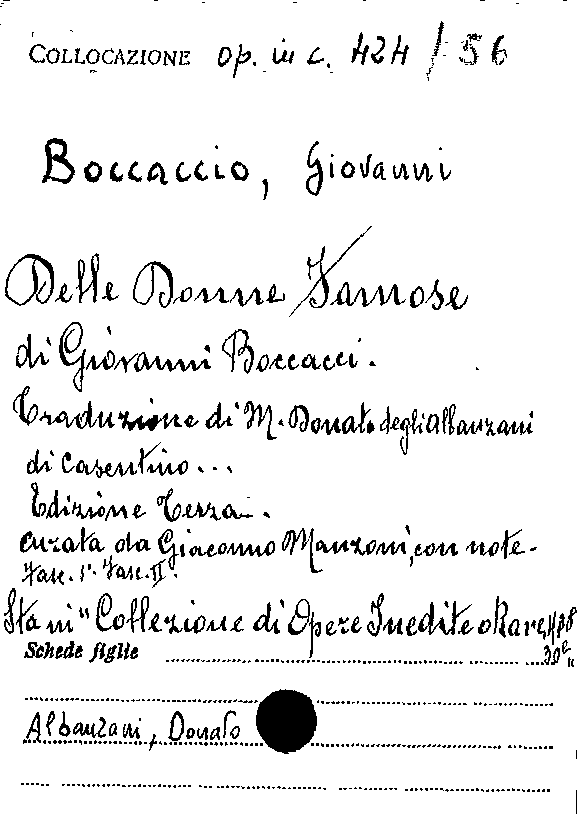 COLLOCAZIONE op. in c. 424 / 56
Boccaccio, Giovanni
Delle Donne Famose
di Giovanni Boccacci.
Traduzione di M. Donato degli Albanzani
di Casentino...
Edizione Terza.
curata da Giacomo Manzoni, con note.
Fasc. I°. Fasc. II°.
Sta in "Collezione di Opere Inedite o Rare,
Schede figlie
Albanzani, Donato